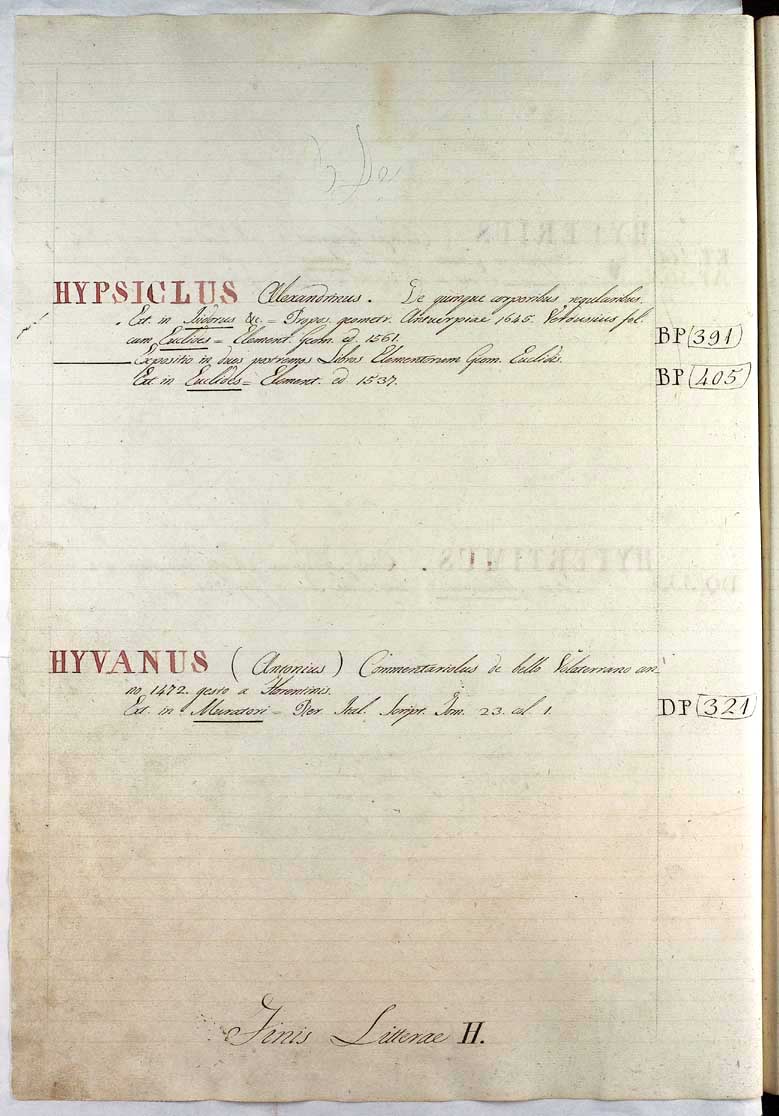 HYPSICLUS Alexandrinus. De quinque corporibus regularibus.
Ext. in Isidorus &c. = Propos. geometr. Antuerpiae 1645. fol.
cum Euclides = Element. Geom. ed. 1561.
BP 391
Expositio in duos postremos Libros Elementorum Geom. Euclidis.
Ext. in Euclides = Element. ed. 1537.
BP 405
HYVANUS (Antonius) Commentariolus de bello Volaterrano an-
no 1472. gesto a Florentinis.
Ext. in Muratori = Rer. Ital. Script. Tom. 23. col. 1.
DP 321
Finis Litterae H.